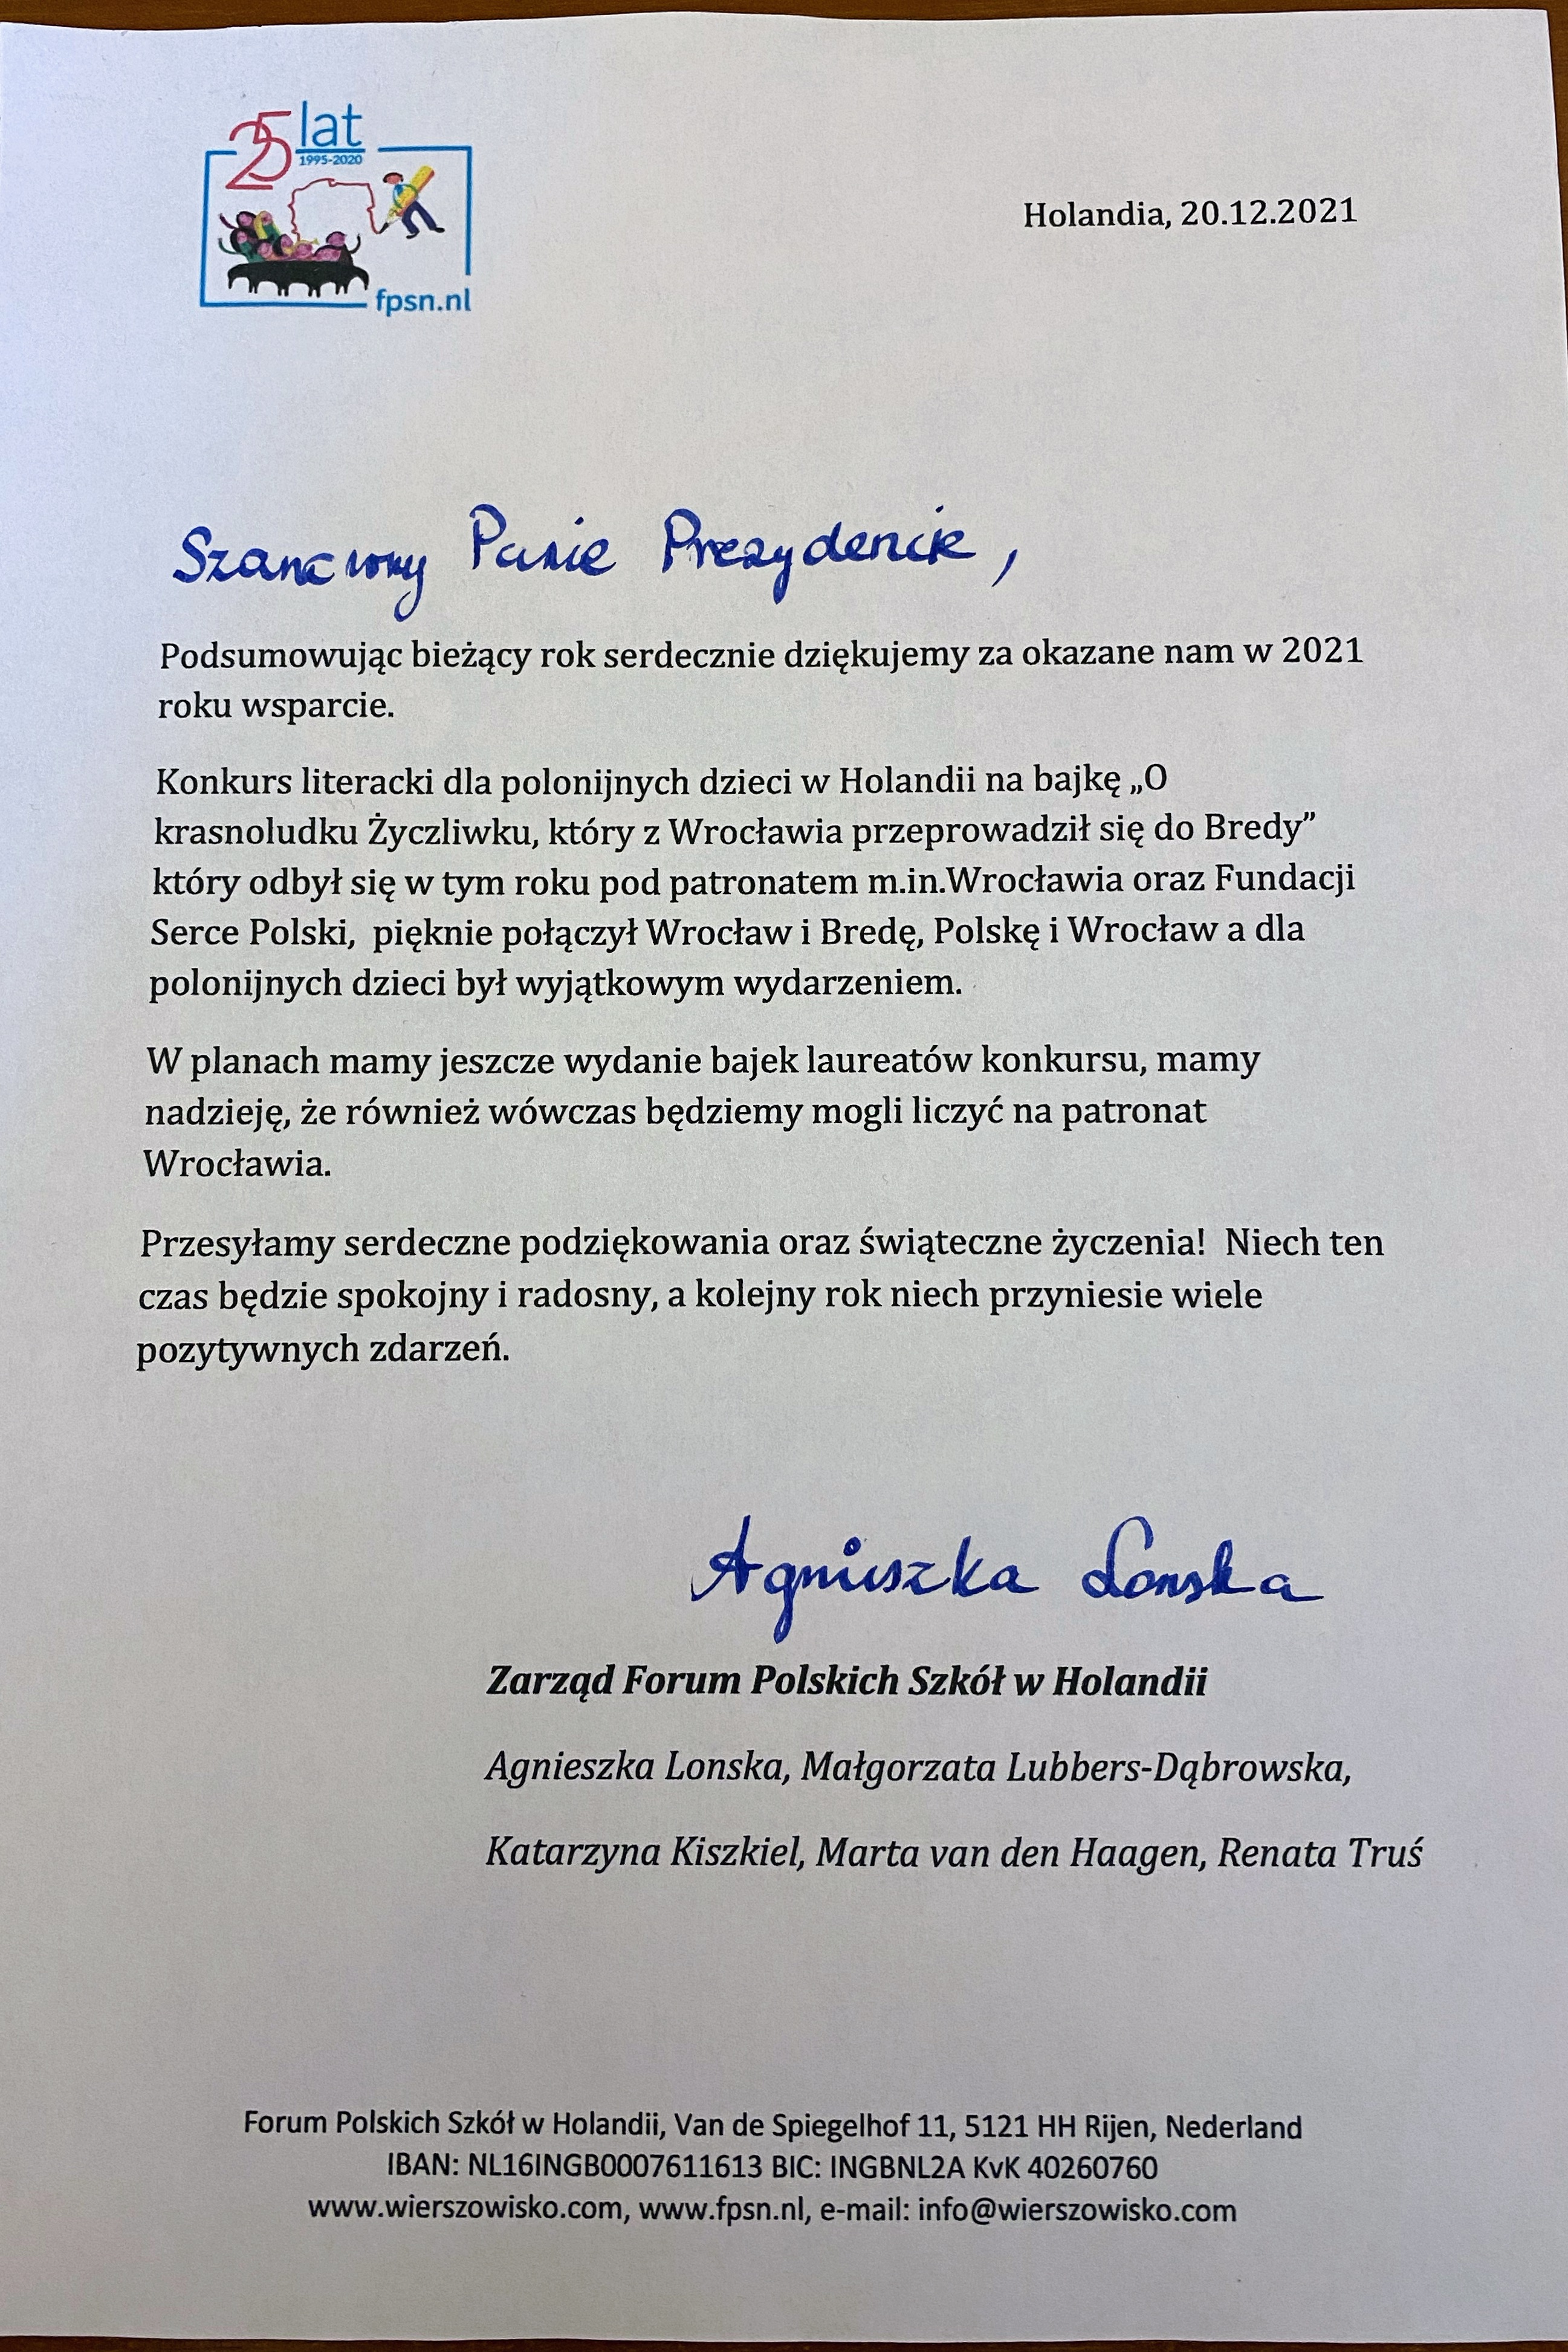 25 lat
1995-2020
fpsn.nl
Holandia, 20.12.2021
Szanowny Panie Prezydencie,
Podsumowując bieżący rok serdecznie dziękujemy za okazane nam w 2021
roku wsparcie.
Konkurs literacki dla polonijnych dzieci w Holandii na bajkę „O
krasnoludku Życzliwku, który z Wrocławia przeprowadził się do Bredy”
który odbył się w tym roku pod patronatem m.in.Wrocławia oraz Fundacji
Serce Polski,  pięknie połączył Wrocław i Bredę, Polskę i Wrocław a dla
polonijnych dzieci był wyjątkowym wydarzeniem.
W planach mamy jeszcze wydanie bajek laureatów konkursu, mamy
nadzieję, że również wówczas będziemy mogli liczyć na patronat
Wrocławia.
Przesyłamy serdeczne podziękowania oraz świąteczne życzenia!  Niech ten
czas będzie spokojny i radosny, a kolejny rok niech przyniesie wiele
pozytywnych zdarzeń.
Agnieszka Lonska
Zarząd Forum Polskich Szkół w Holandii
Agnieszka Lonska, Małgorzata Lubbers-Dąbrowska,
Katarzyna Kiszkiel, Marta van den Haagen, Renata Truś
Forum Polskich Szkół w Holandii, Van de Spiegelhof 11, 5121 HH Rijen, Nederland
IBAN: NL16INGB0007611613 BIC: INGBNL2A KvK 40260760
www.wierszowisko.com, www.fpsn.nl, e-mail: info@wierszowisko.com